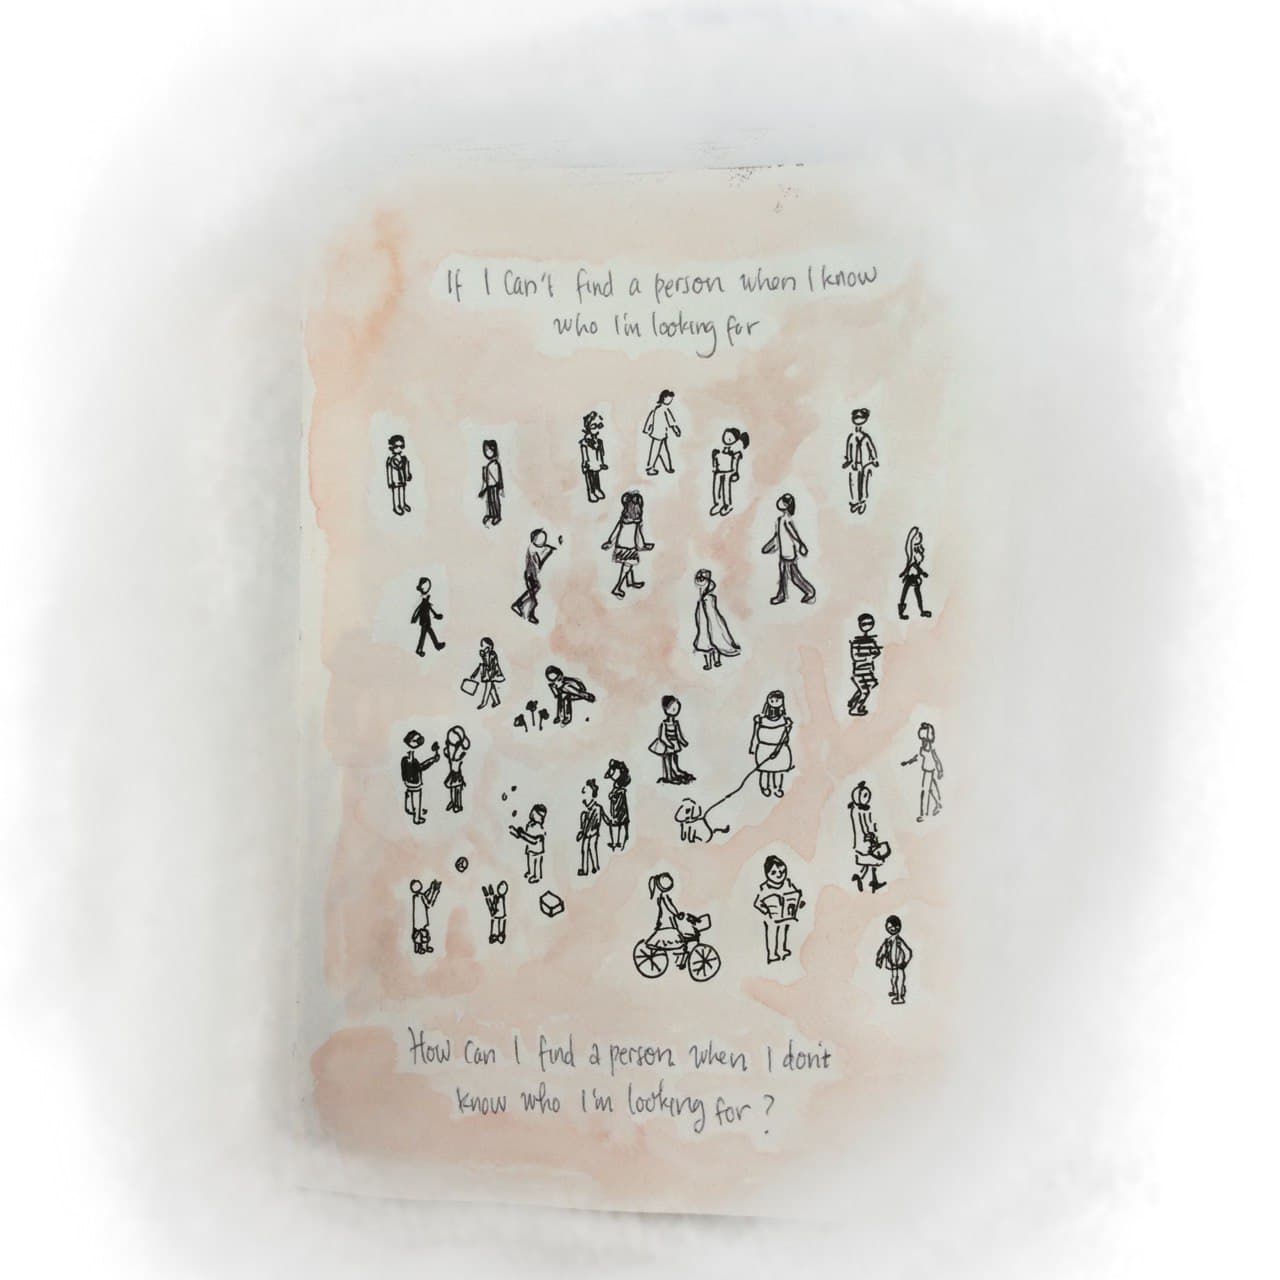 If I can't find a person when I know
who I'm looking for
How can I find a person when I don't
know who I'm looking for?